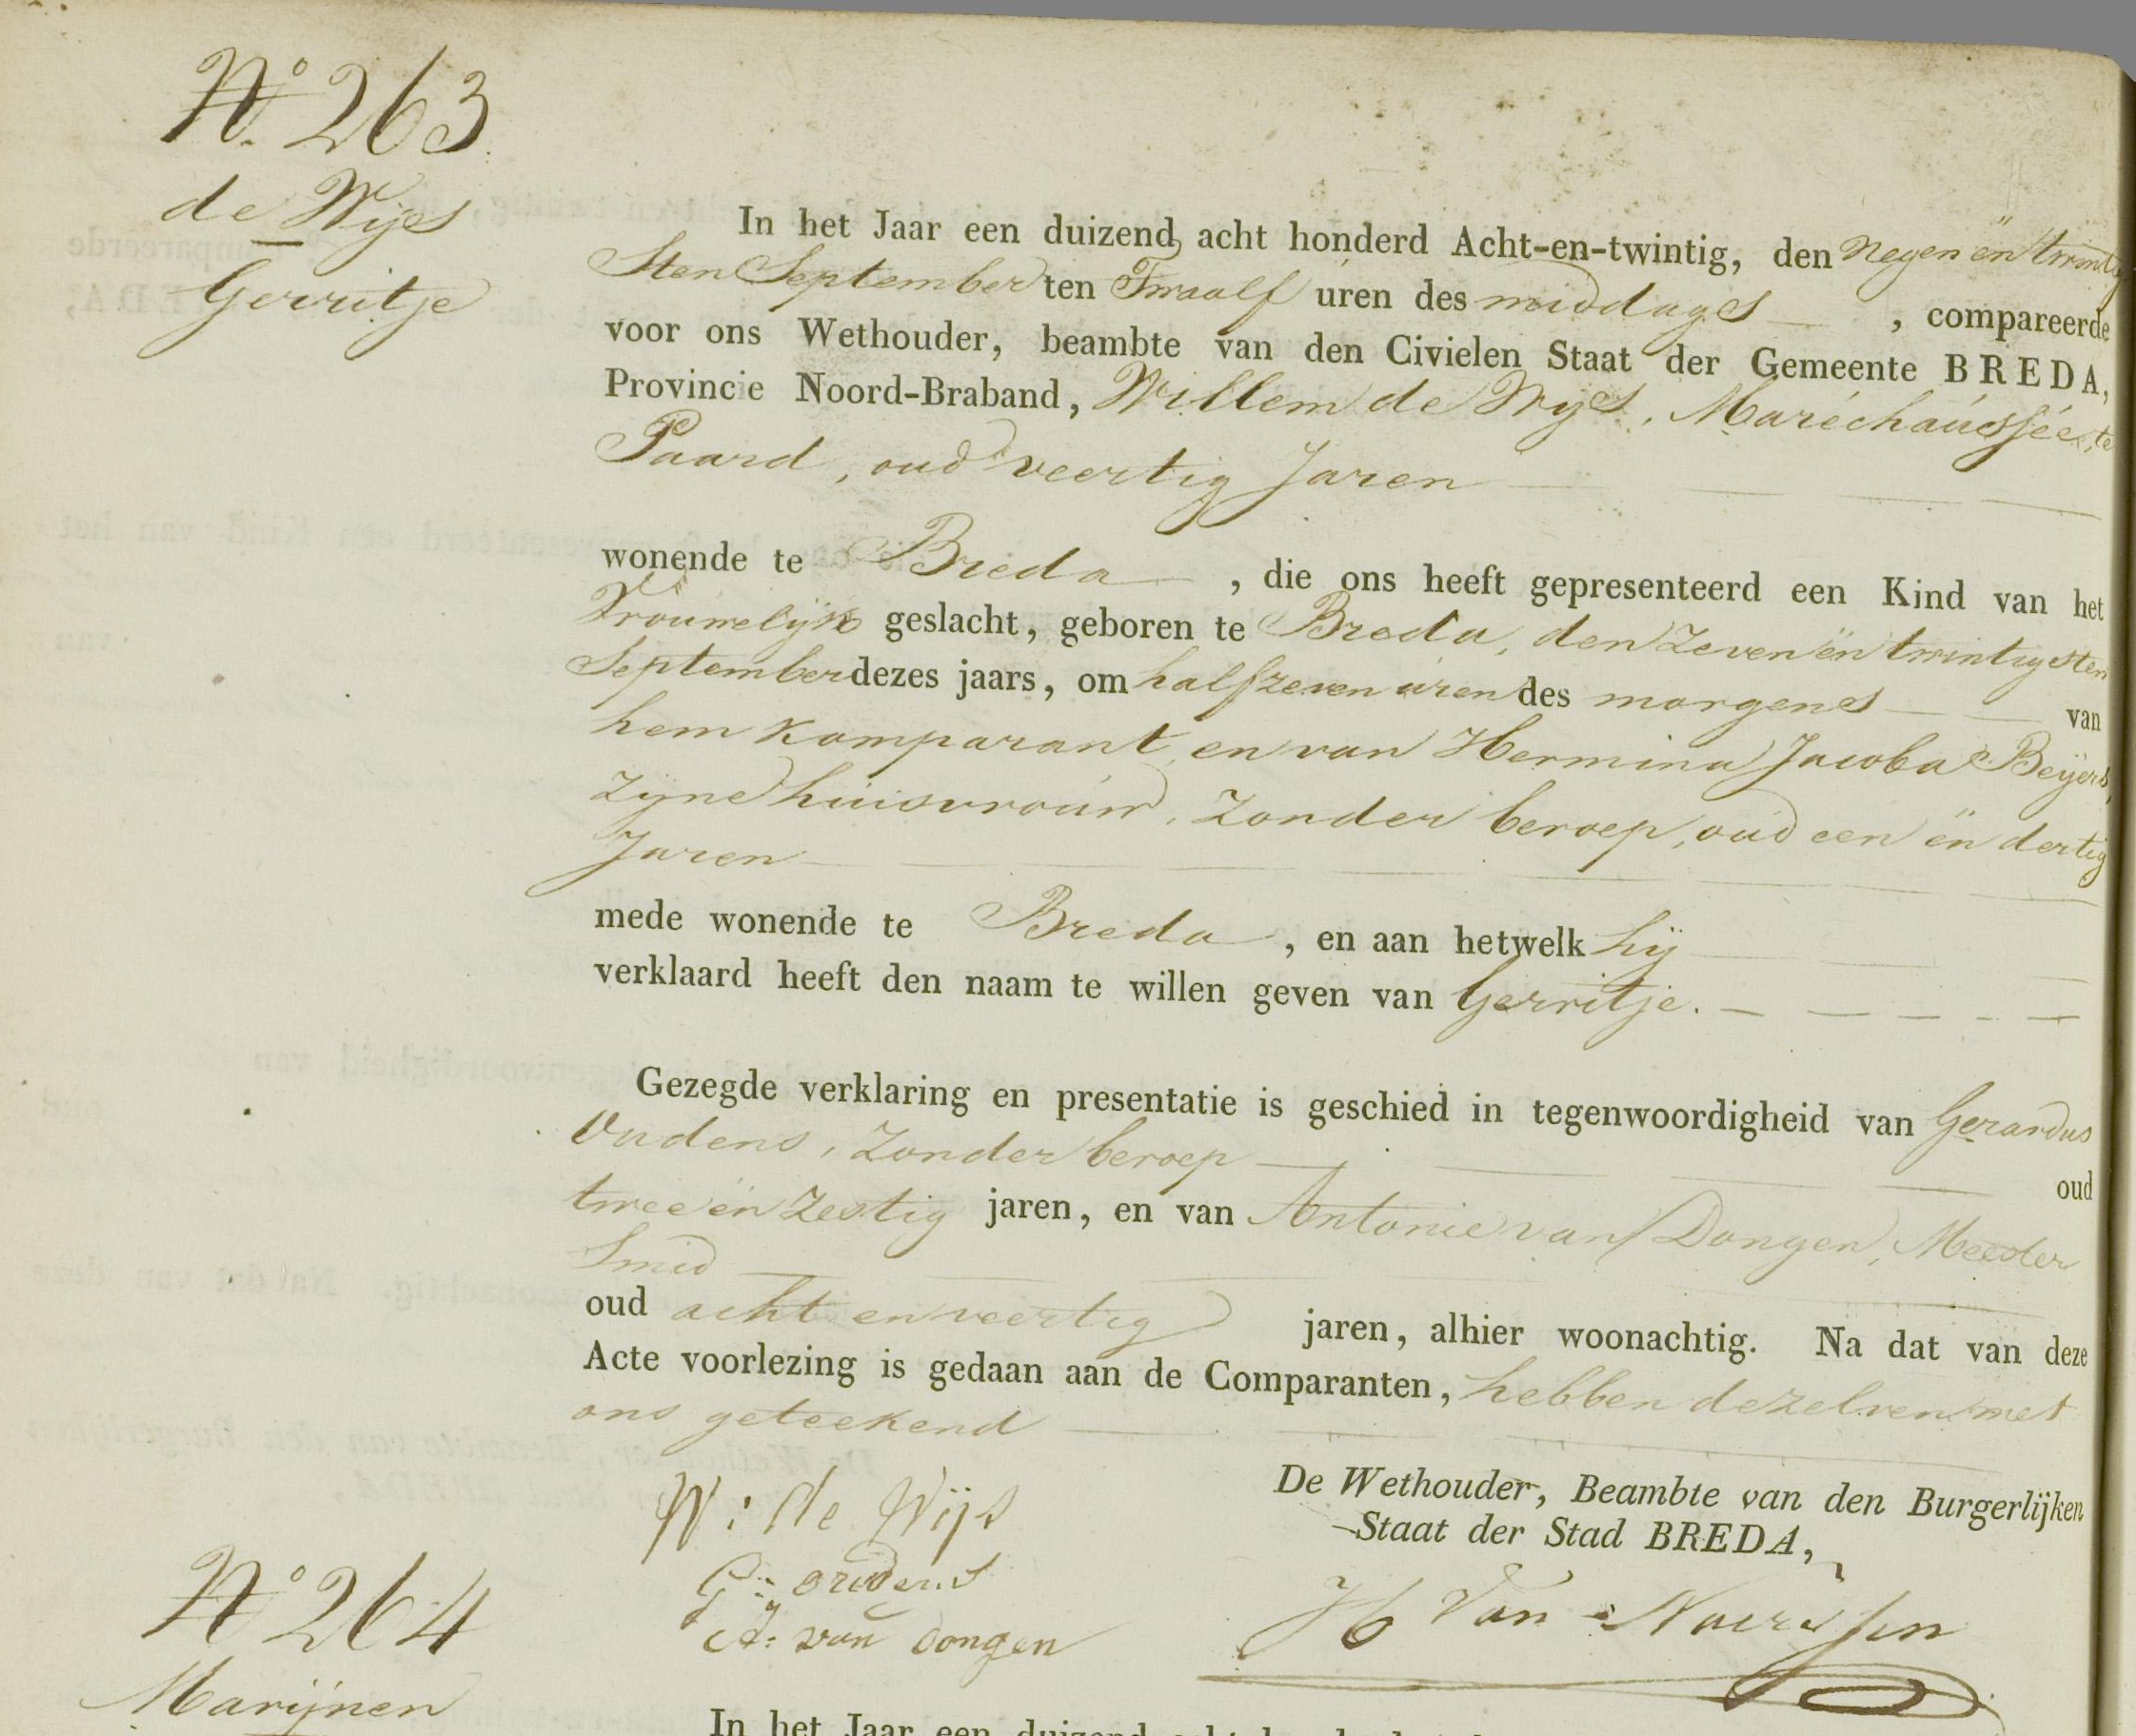 No. 263
de Wijs
Gerritje
In het Jaar een duizend acht honderd Acht-en-twintig, den Negen en twintig
sten September ten Twaalf uren des middags , compareerde
voor ons Wethouder, beambte van den Civielen Staat der Gemeente BREDA,
Provincie Noord-Braband, Willem de Wijs, Maréchaussée, te
Paard, oud veertig Jaren
wonende te Breda , die ons heeft gepresenteerd een Kind van het
Vrouwelijk geslacht, geboren te Breda, den zeven en twintigsten
September dezes jaars, om half zeven uren des morgens van
hem komparant, en van Hermina Jacoba Beijers,
zijne huisvrouw, zonder beroep, oud een en dertig
Jaren
mede wonende te Breda , en aan hetwelk hij
verklaard heeft den naam te willen geven van Gerritje.
Gezegde verklaring en presentatie is geschied in tegenwoordigheid van Gerardus
Oudens, zonder beroep oud
twee en zestig jaren, en van Antonie van Dongen, Meester
Smid
oud acht en veertig jaren, alhier woonachtig. Na dat van deze
Acte voorlezing is gedaan aan de Comparanten, hebben dezelven met
ons geteekend
De Wethouder, Beambte van den Burgerlijken
Staat der Stad BREDA,
W: de Wijs
G: oudens
A: van dongen
No. 264
Marijnen
In het Jaar een duizend